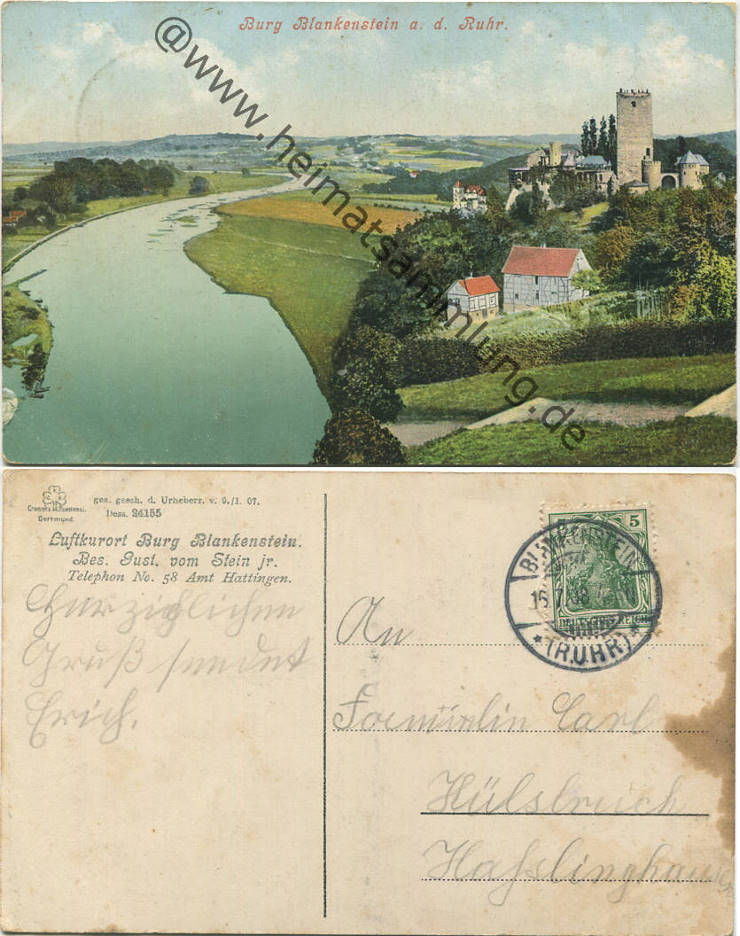 Burg Blankenstein a. d. Ruhr.
@www.heimatsammlung.de
ges. gesch. d. Urheberr. v. 9./1. 07.
Dess. 24155
Dortmund.
Luftkurort Burg Blankenstein.
Bes. Gust. vom Stein jr.
Telephon No. 58 Amt Hattingen.
Herzlichen
Gruß sendet
Erich.
5
DEUTSCHES REICH
BLANKENSTEIN
* (RUHR) *
An
Carl
Hülsbreich
Hasslinghausen